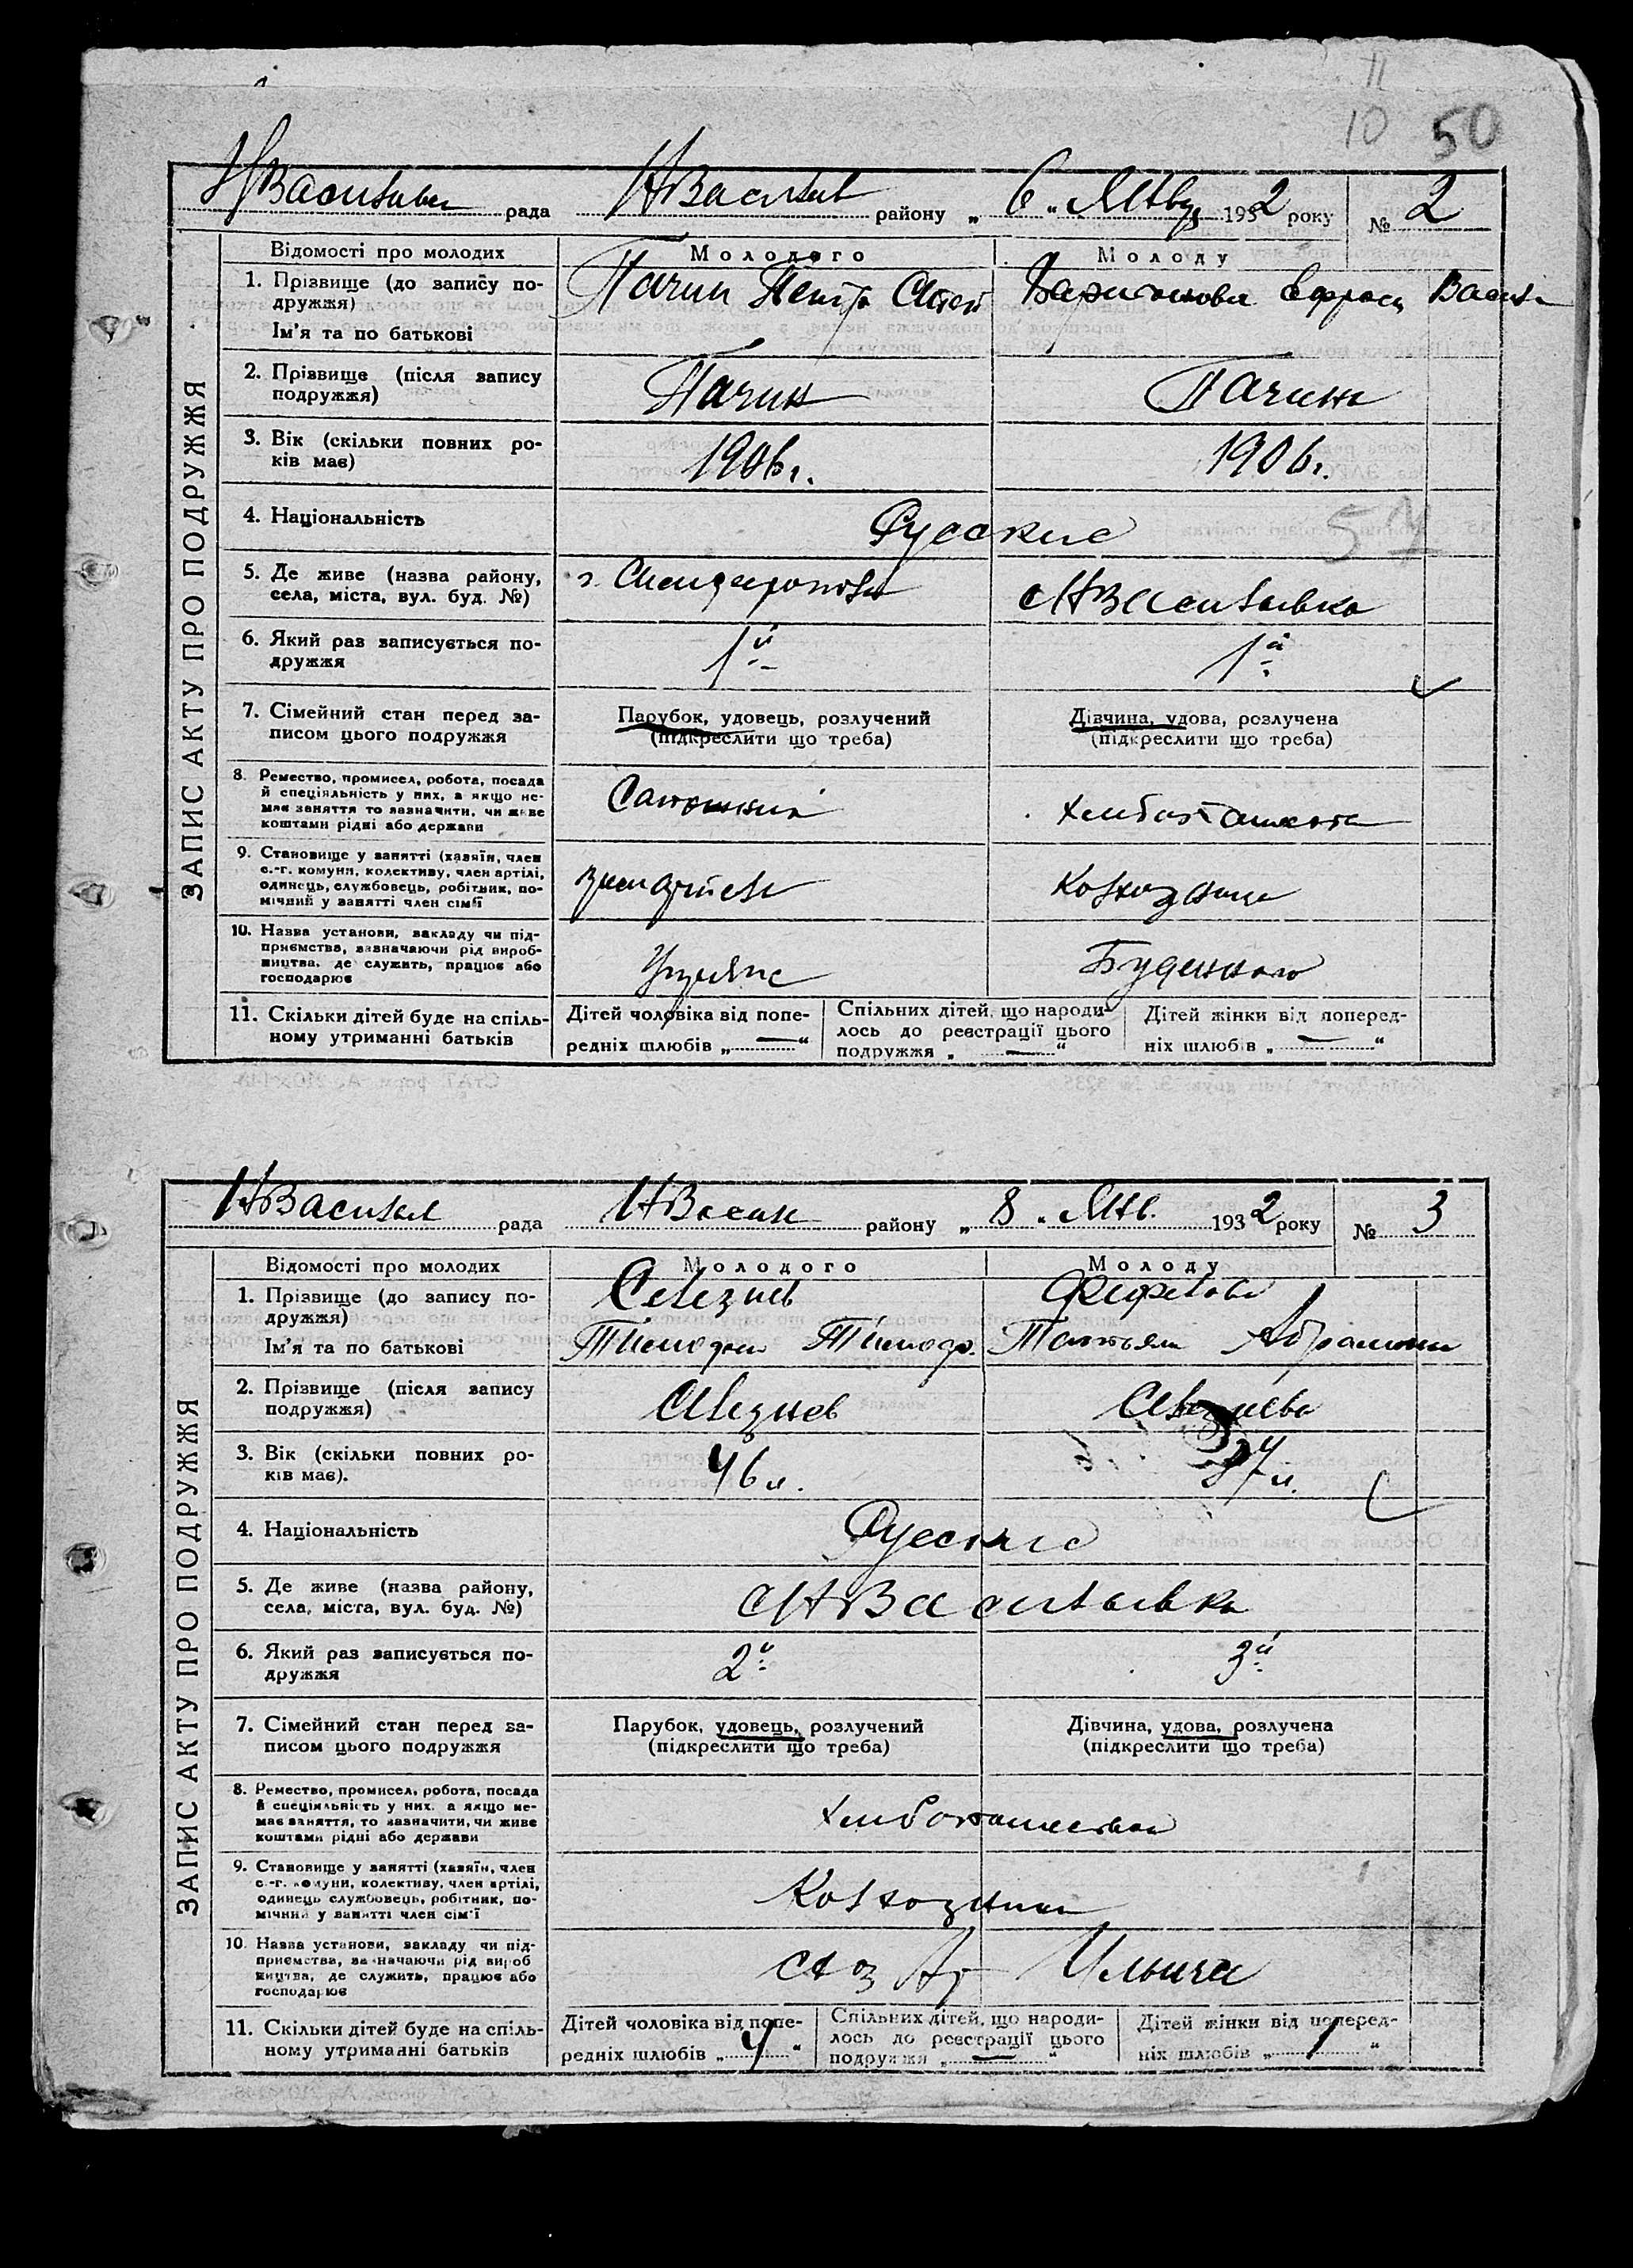 11
10 50
НВасильев рада НВасильев району „ 6 „ Янв 1932 року № 2
ЗАПИС АКТУ ПРО ПОДРУЖЖЯ
Відомості про молодих Молодого Молоду
1. Прізвище (до запису по-
дружжя)
Ім'я та по батькові
Пачин Петр Васи
2. Прізвище (після запису
подружжя)
Пачин Пачина
3. Вік (скільки повних ро-
ків має)
1906г. 1906г.
4. Національність
Русские
5. Де живе (назва району,
села, міста, вул. буд. №)
г. Симферополь с НВасильевка
6. Який раз записується по-
дружжя
1й 1й
7. Сімейний стан перед за-
писом цього подружжя
Парубок, удовець, розлучений
(підкреслити що треба)
Дівчина, удова, розлучена
(підкреслити що треба)
8. Ремество, промисел, робота, посада
й спеціяльність у них, а якщо не-
має заняття то зазначити, чи живе
коштами рідні або держави
9. Становище у занятті (хазяїн, член
с.-г. комуни, колективу, член артілі,
одинець, службовець, робітник, по-
мічний у занятті член сім'ї
Колхозница
10. Назва установи, закладу чи під-
приємства, зазначаючи рід вироб-
ництва, де служить, працює або
господарює
Буденного
11. Скільки дітей буде на спіль-
ному утриманні батьків
Дітей чоловіка від попе-
редніх шлюбів „ — “
Спільних дітей, що народи-
лось до реєстрації цього
подружжя „ — “
Дітей жінки від поперед-
ніх шлюбів „ — “
НВасильев рада НВасил району „ 8 „ Янв. 1932 року № 3
ЗАПИС АКТУ ПРО ПОДРУЖЖЯ
Відомості про молодих Молодого Молоду
1. Прізвище (до запису по-
дружжя)
Ім'я та по батькові
Селезнев Фефелова
Тімофей Тімоф. Татьяна Абрамовн
2. Прізвище (після запису
подружжя)
Селезнев Селезнева
3. Вік (скільки повних ро-
ків має).
46 л. 37 л.
4. Національність
Русские
5. Де живе (назва району,
села, міста, вул. буд. №)
с НВасильевка
6. Який раз записується по-
дружжя
2й 3й
7. Сімейний стан перед за-
писом цього подружжя
Парубок, удовець, розлучений
(підкреслити що треба)
Дівчина, удова, розлучена
(підкреслити що треба)
8. Ремество, промисел, робота, посада
й спеціяльність у них, а якщо не-
має заняття, то зазначити, чи живе
коштами рідні або держави
9. Становище у занятті (хазяїн, член
с.-г. комуни, колективу, член артілі,
одинець службовець, робітник, по-
мічний у занятті член сім'ї
Колхозники
10. Назва установи, закладу чи під-
приємства, зазначаючи рід вироб
ництва, де служить, працює або
господарює
Ильича
11. Скільки дітей буде на спіль-
ному утриманні батьків
Дітей чоловіка від попе-
редніх шлюбів „ 4 “
Спільних дітей, що народи-
лось до реєстрації цього
подружжя „ — “
Дітей жінки від поперед-
ніх шлюбів „ 1 “